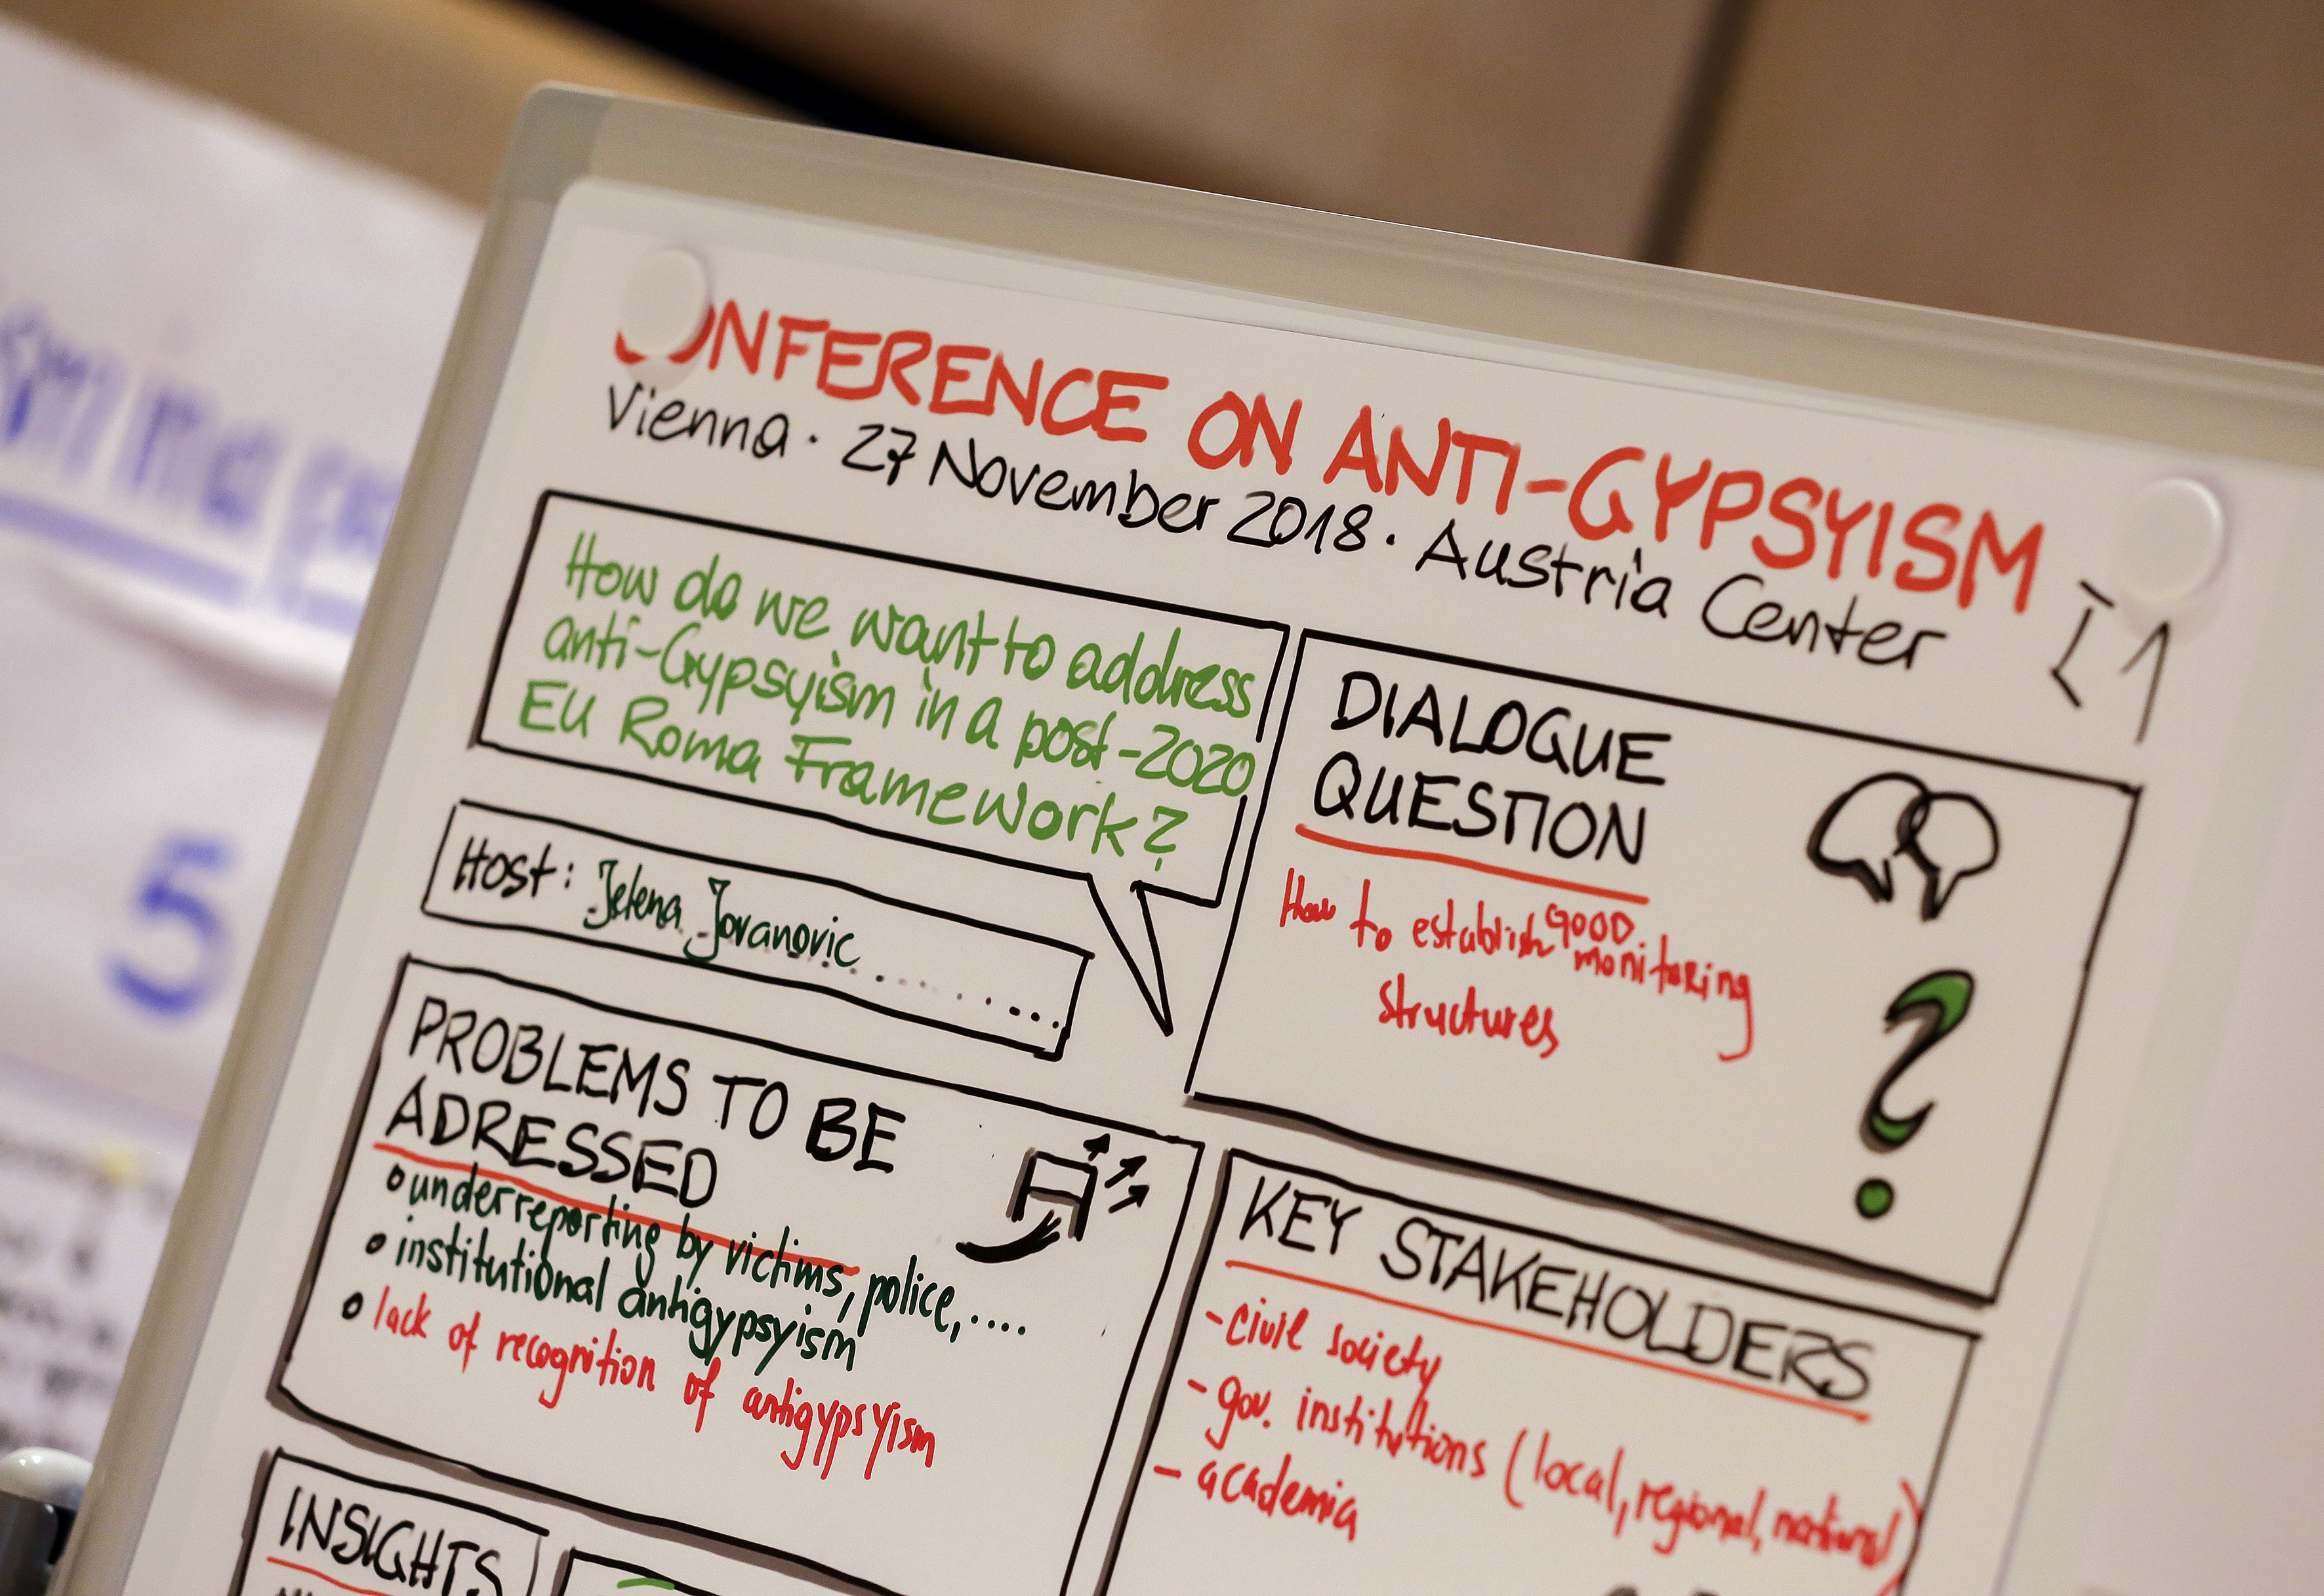 CONFERENCE ON ANTI-GYPSYISM
Vienna · 27 November 2018 · Austria Center
How do we want to address
anti-Gypsyism in a post-2020
EU Roma Framework?
Host: Jelena Jovanovic
DIALOGUE
QUESTION
How to establish GOOD monitoring
structures
PROBLEMS TO BE
ADRESSED
underreporting by victims, police,....
institutional antigypsyism
lack of recognition of antigypsyism
KEY STAKEHOLDERS
- civil society
- gov. institutions (local, regional, national)
- academia
INSIGHTS
5